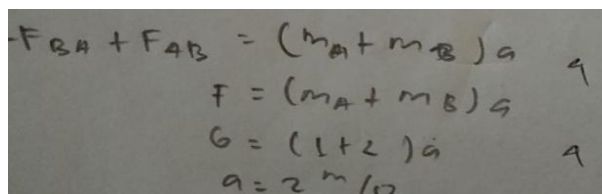 -F_BA + F_AB = (m_A + m_B) a
F = (m_A + m_B) a
6 = (1 + 2) a
a = 2 m/